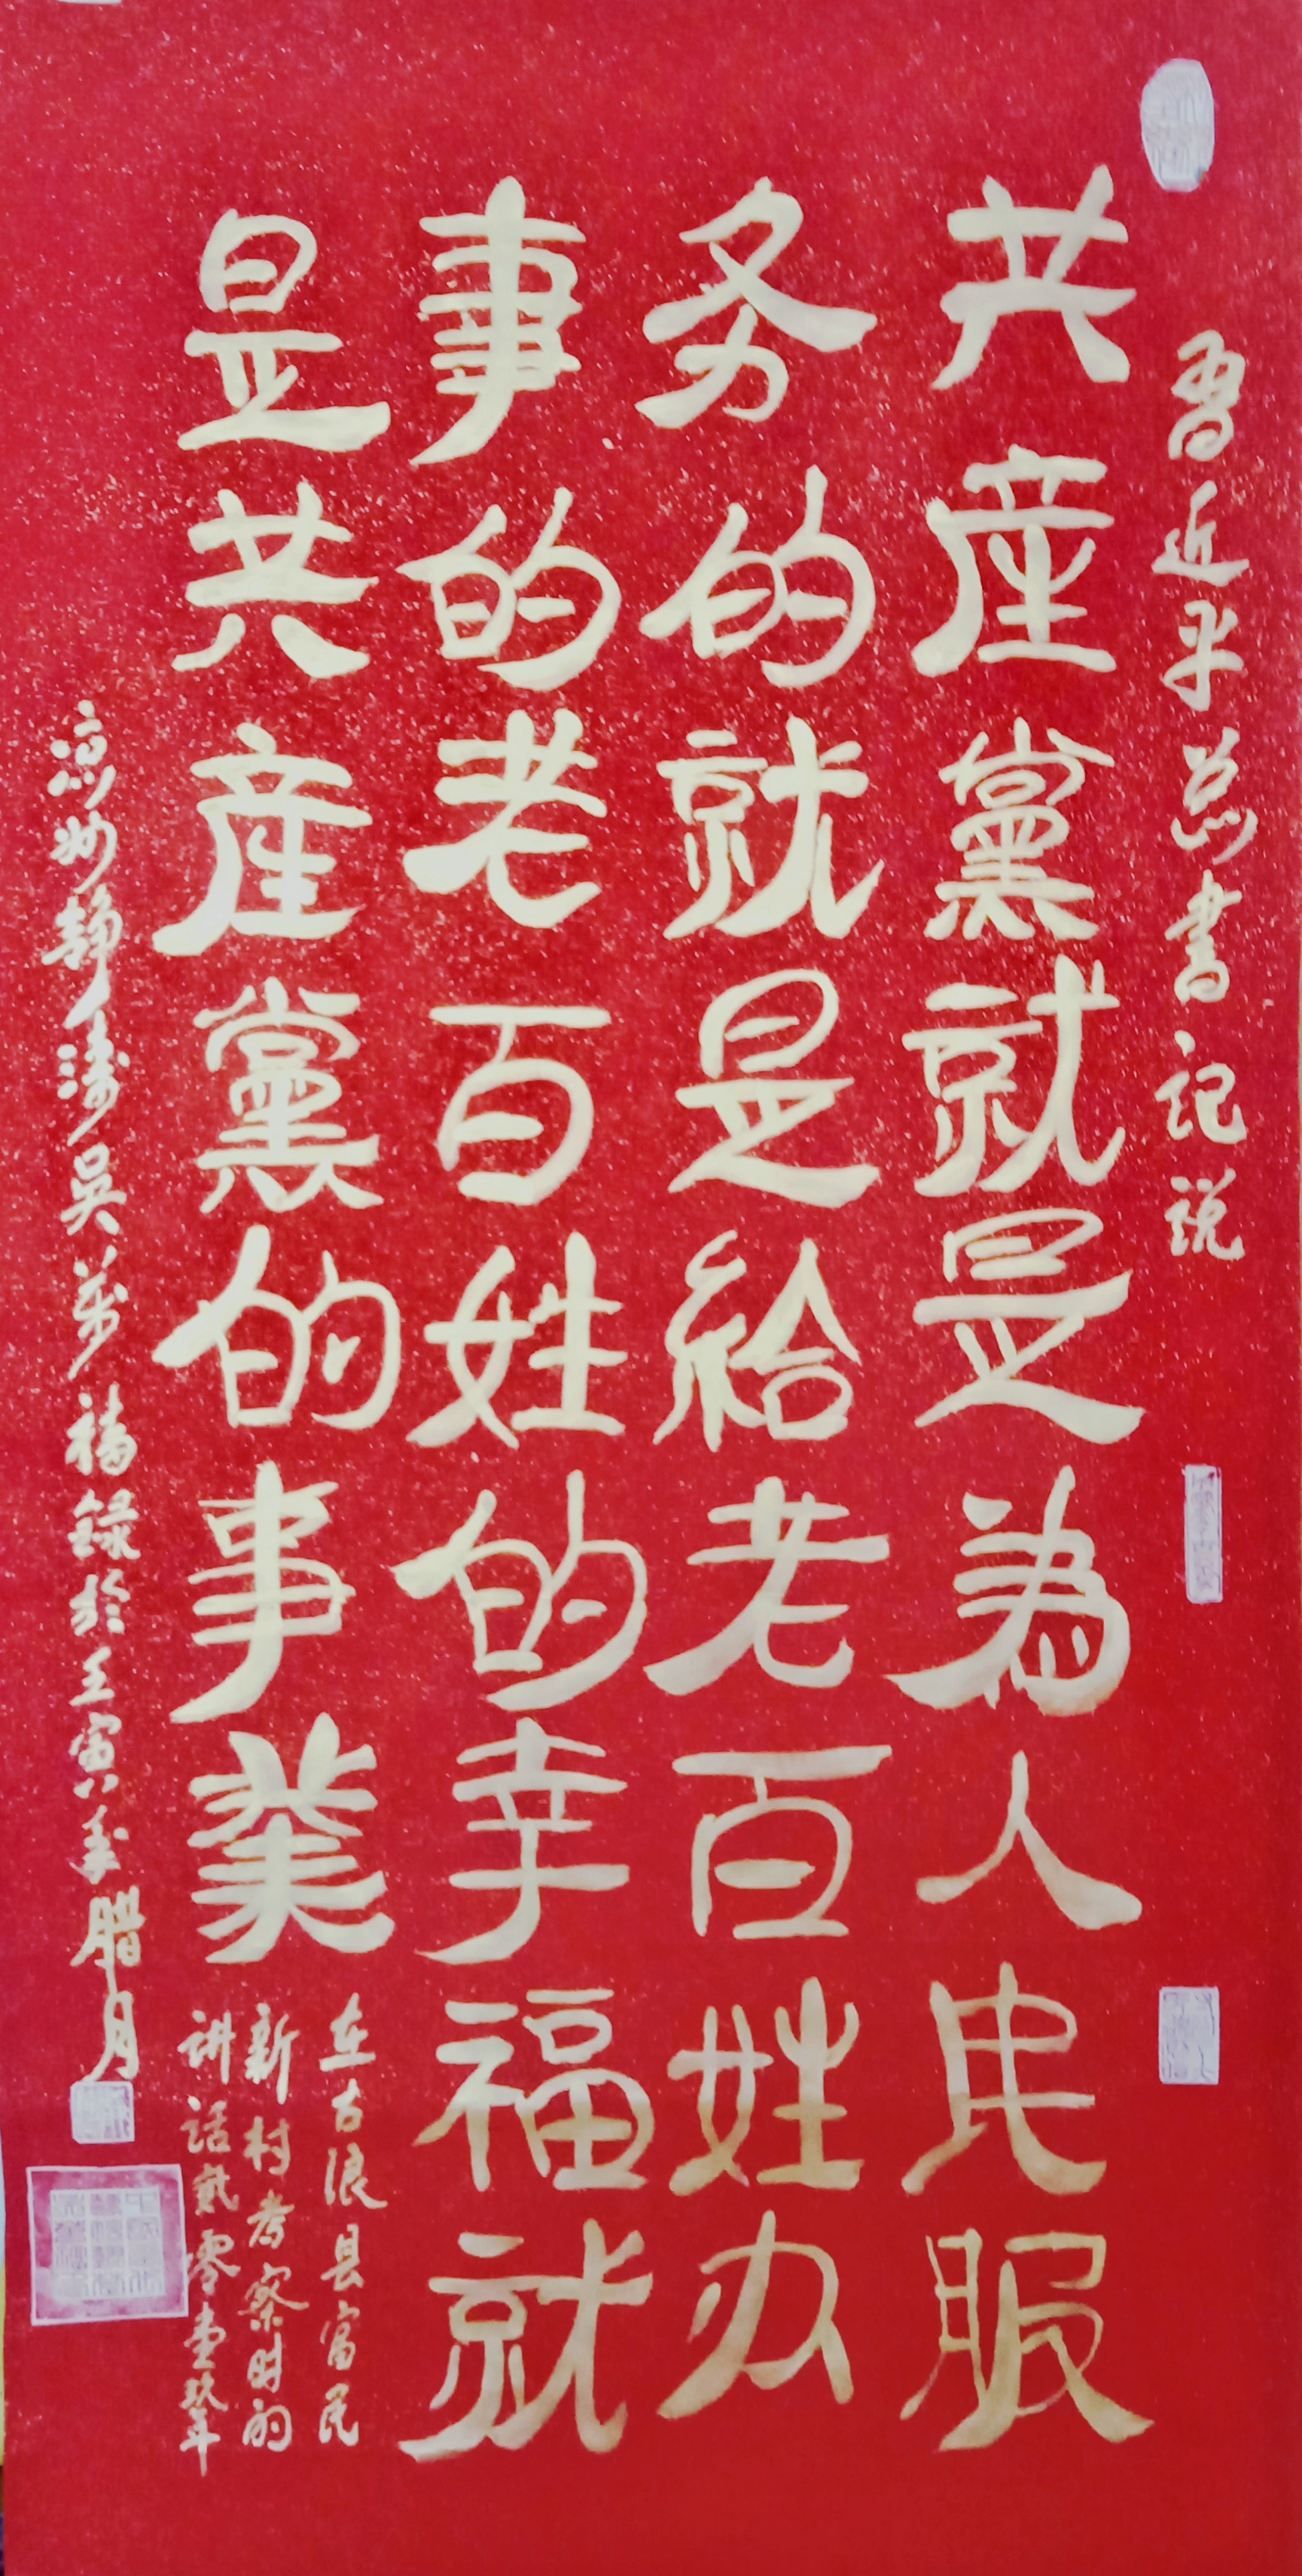 習近平总書記説
共産黨就是為人民服
务的就是給老百姓办
事的老百姓的幸福就
是共産黨的事業
在古浪县富民
新村考察时的
讲话貳零壹玖年
凉州静涛吴万福録於壬寅年臘月